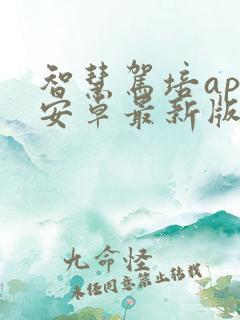 智慧驾培ap
安卓最新版
九命怪
未经同意禁止转载